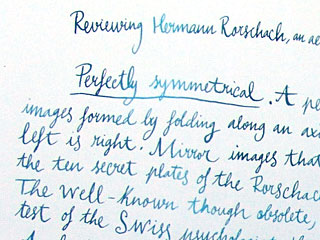 Reviewing Hermann Rorschach, an
Perfectly symmetrical. A
images formed by folding along an
left is right. Mirror images that
the ten secret plates of the
The well-known though obsolete,
test of the Swiss